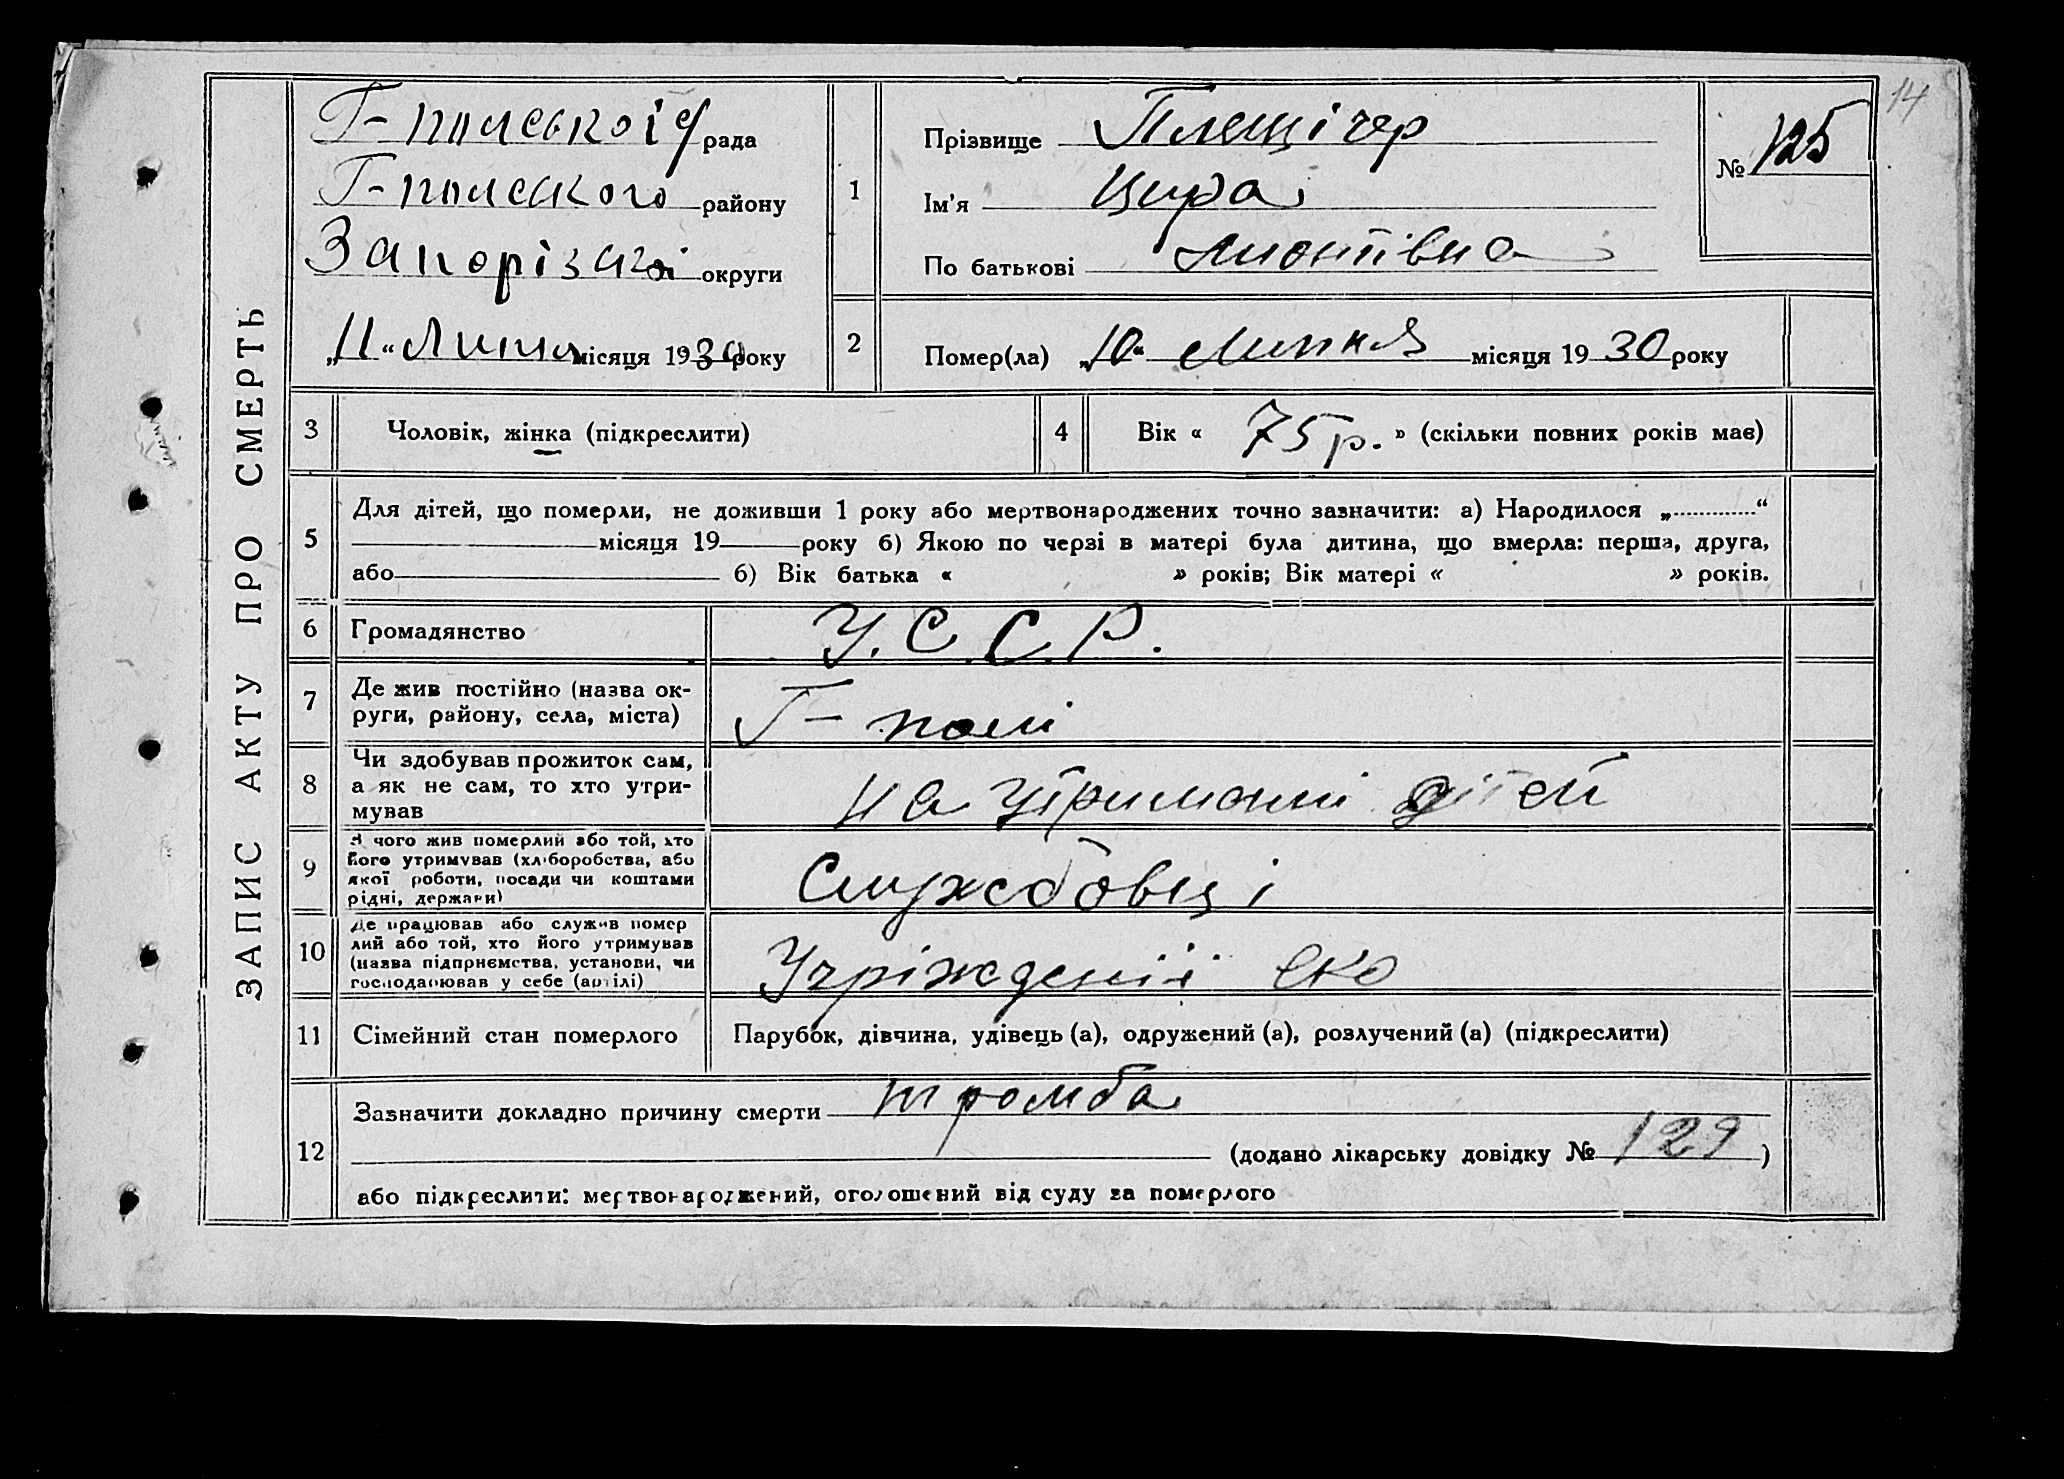 14
ЗАПИС АКТУ ПРО СМЕРТЬ
Г-польської рада
Г-польского району
Запорізької округи
„11“ Липня місяця 1930 року
1
Прізвище Плещігер
Ім'я Цира
По батькові
№ 125
2
Помер(ла) „10“ Липня місяця 1930 року
3 Чоловік, жінка (підкреслити)
4 Вік « 75 р. » (скільки повних років має)
5
Для дітей, що померли, не доживши 1 року або мертвонароджених точно зазначити: а) Народилося „............“
місяця 19 року б) Якою по черзі в матері була дитина, що вмерла: перша, друга,
або б) Вік батька « » років; Вік матері « » років.
6 Громадянство У.С.С.Р.
7
Де жив постійно (назва ок-
руги, району, села, міста)
Г-полі
8
Чи здобував прожиток сам,
а як не сам, то хто утри-
мував
на утриманні дітей
9
З чого жив померлий або той, хто
його утримував (хліборобства, або
якої роботи, посади чи коштами
рідні, держави)
Службовці
10
Де працював або служив помер
лий або той, хто його утримував
(назва підприємства, установи, чи
господарював у себе (артілі)
Учріжденіі
11 Сімейний стан померлого
Парубок, дівчина, удівець (а), одружений (а), розлучений (а) (підкреслити)
12
Зазначити докладно причину смерти тромба
(додано лікарську довідку № 129 )
або підкреслити: мертвонароджений, оголошений від суду за померлого